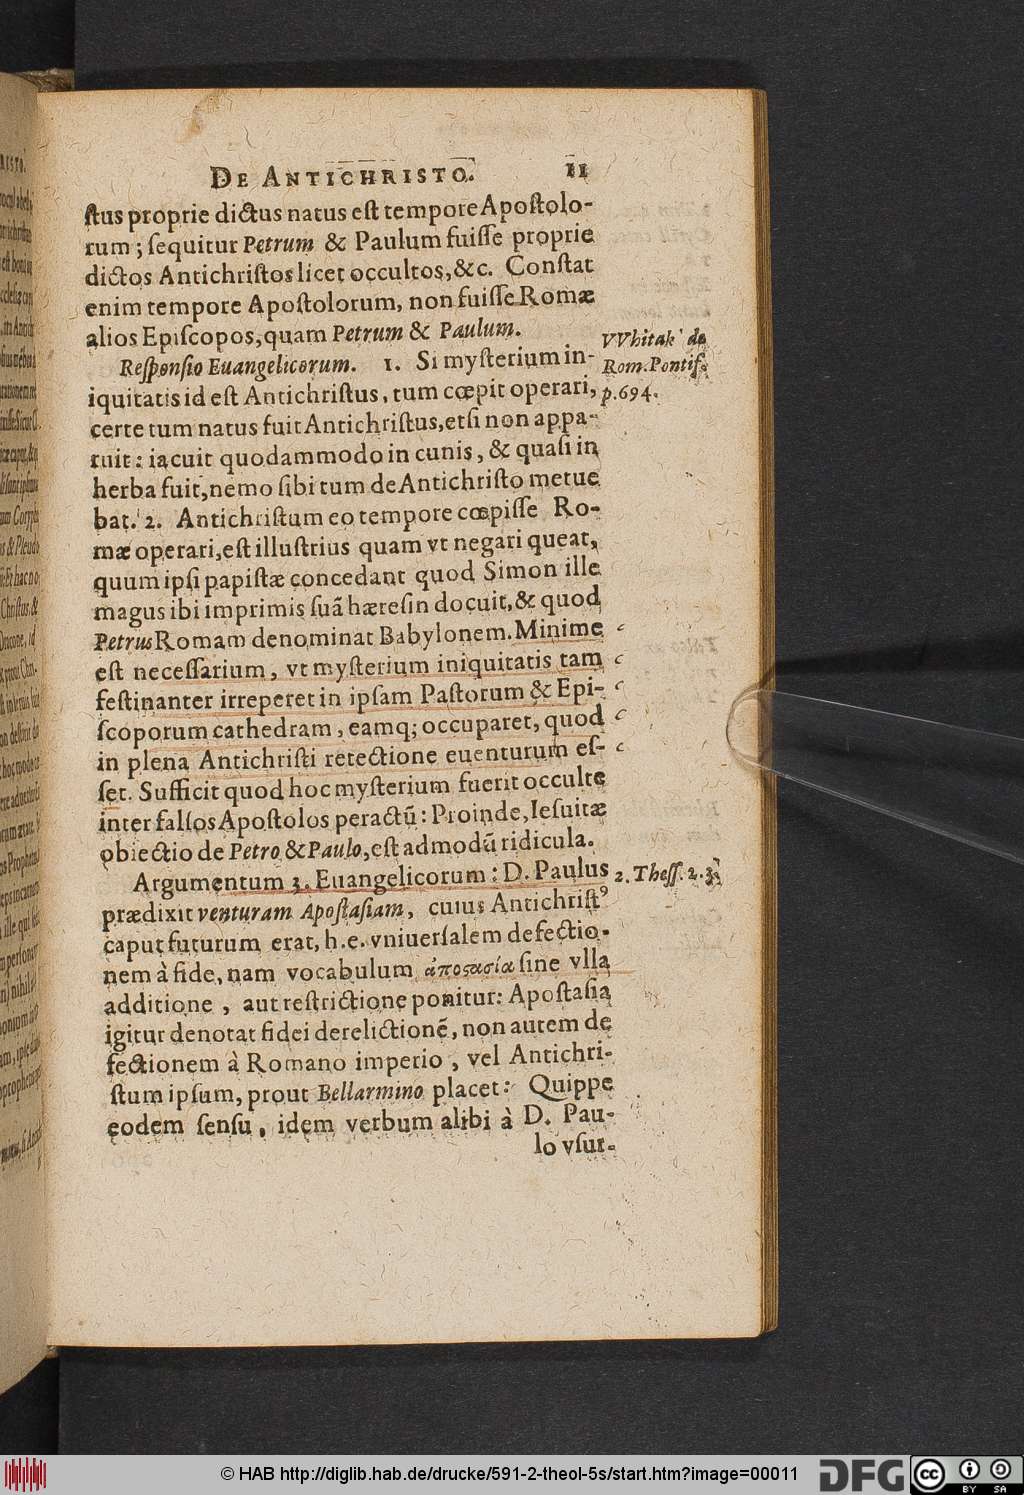 DE ANTICHRISTO. 11
ſtus proprie dictus natus eſt tempore Apoſtolo-
rum; ſequitur Petrum & Paulum fuiſſe proprie
dictos Antichriſtos licet occultos, &c. Conſtat
enim tempore Apoſtolorum, non fuiſſe Romæ
alios Epiſcopos, quam Petrum & Paulum.
Reſponſio Euangelicorum. 1. Si myſterium in-
iquitatis id eſt Antichriſtus, tum cœpit operari,
certe tum natus fuit Antichriſtus, etſi non appa-
ruit: iacuit quodammodo in cunis, & quaſi in
herba fuit, nemo ſibi tum de Antichriſto metue
bat. 2. Antichriſtum eo tempore cœpiſſe Ro-
mæ operari, eſt illuſtrius quam vt negari queat,
quum ipſi papiſtæ concedant quod Simon ille
magus ibi imprimis ſuã hæreſin docuit, & quod
Petrus Romam denominat Babylonem. Minime
eſt neceſſarium, vt myſterium iniquitatis tam
feſtinanter irreperet in ipſam Paſtorum & Epi-
ſcoporum cathedram, eamq; occuparet, quod
in plena Antichriſti retectione euenturum eſ-
ſet. Sufficit quod hoc myſterium fuerit occulte
inter falſos Apoſtolos peractũ: Proinde, Ieſuitæ
obiectio de Petro & Paulo, eſt admodũ ridicula.
Argumentum 3. Euangelicorum: D. Paulus
prædixit venturam Apoſtaſiam, cuius Antichriſtꝰ
caput futurum erat, h. e. vniuerſalem defectio-
nem à fide, nam vocabulum ἀποϛασία ſine vlla
additione, aut reſtrictione ponitur: Apoſtaſia
igitur denotat fidei derelictionẽ, non autem de
fectionem à Romano imperio, vel Antichri-
ſtum ipſum, prout Bellarmino placet: Quippe
eodem ſenſu, idem verbum alibi à D. Pau-
lo vſur-
VVhitak de
Rom. Pontif.
p. 694.
2. Theſſ. 2. 3.
© HAB http://diglib.hab.de/drucke/591-2-theol-5s/start.htm?image=00011
DFG
cc
BY SA